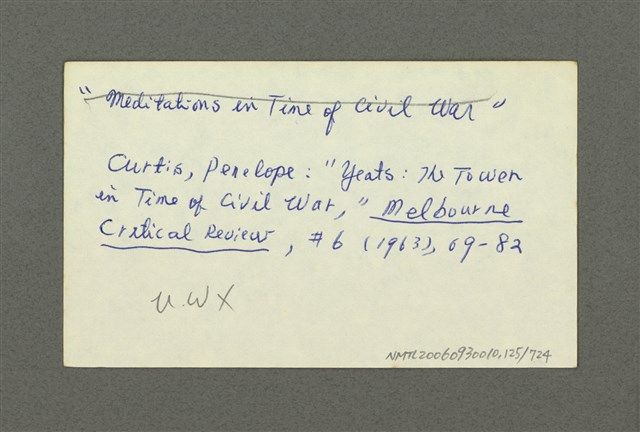 "Meditations in Time of Civil War"
Curtis, Penelope: "Yeats: The Tower
in Time of Civil War," Melbourne
Critical Review, #6 (1963), 69-82
U.WX
NMTL20060930010.125/724